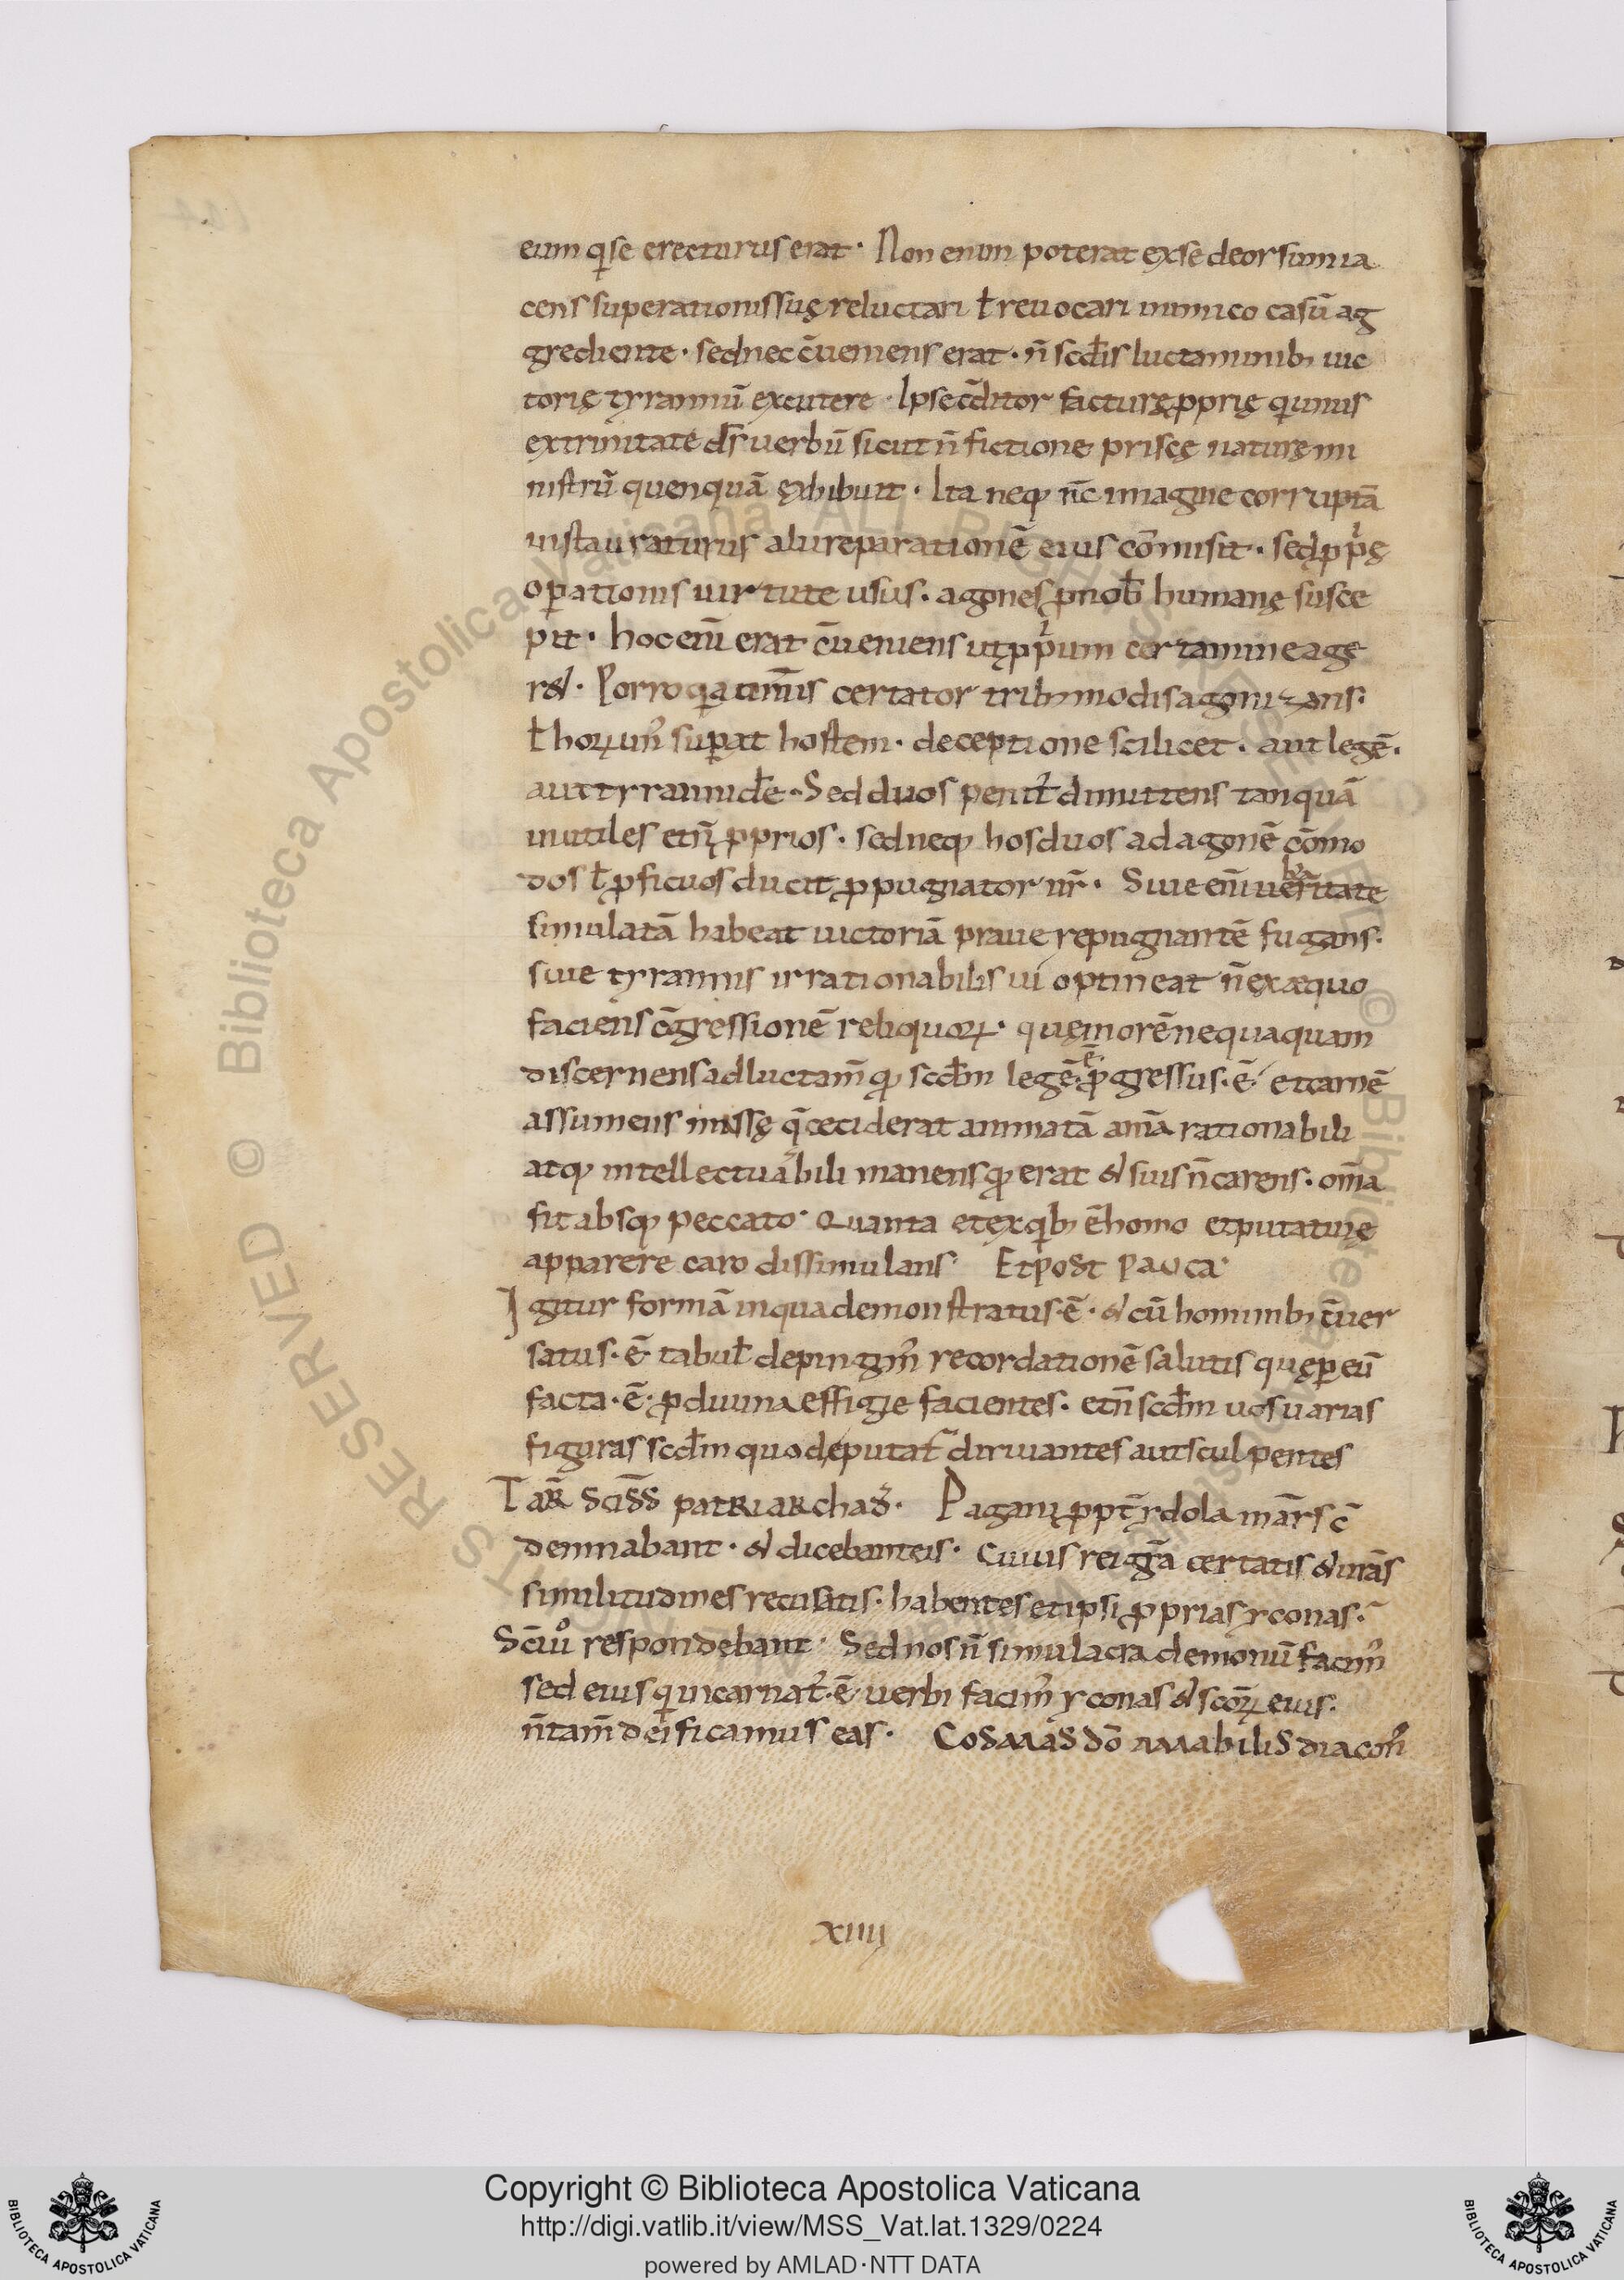 eum qise erecturus erat· Non enim poterat exse deorsum ia
cens superationis suę reluctari ł reuocari inimico casū ag
grediente· sed nec c̄ueniens erat· n̄ scd̄is luctaminib; uic
torię tyrannū excutere· Ipse c̄ditor facturę ꝓprię qi unus
ex trinitate ds̄ uerbū sicut n̄ fictione priscę naturę mi
nistrū quenquā exhibuit· Ita neq; nc̄ imagine corruptā
instauraturus alii reparationē eius cōmisit· sed ꝓpi̇ę
oꝑationis uirtute usus· agones ꝓ nob̄ humanę susce
pit· hoc enī erat c̄ueniens ut ꝓpi̇um certamine age
r&· Porro certator trib; modis agonizans·
ł horū un' suꝑat hostem· deceptione scilicet· aut legē·
aut tyrannide· Sed duos penit' dimittens tanquā
inutiles et n̄ ꝓprios· sed neq; hos duos ad agonē cōmo
dos ł ꝓficuos ducit ꝓpugnator nr̄· Siue enī
simulatā habeat uictoriā praue repugnantē fugans·
siue tyrannis irrationabilis ui optineat n̄ ex æquo
faciens c̄gressionē reliquorꝝ· quę morē nequaquam
discernens ad luctam̄ q; scd̄m legē ꝓgressus· ē· et carnē
assumens missę q̄ ceciderat animatā anīa rationabili
atq; intellectuabili manens qd erat & suis n̄ carens· om̄a
fit absq; peccato· Quanta et ex qib; ē homo et putaturę
apparere caro dissimulans· Et post pauca·
Igitur formā in qua demonstratus· ē· & cū hominib; c̄uer
satus· ē tabul̄ depingim' recordationē salutis quę ꝑ eū
facta· ē· ꝓ diuina effigie facientes· et n̄ scd̄m uos uarias
figuras scd̄m quod putat̄ diriuantes aut sculpentes
Tar̄ sciss̄ patriarchas· Pagani ꝓpt̄ ydola mar̄s c̄
demnabant· & dicebant eis· Cuius rei gr̄a certatis & ur̄as
similitudines recusatis· habentes et ipsi ꝓprias yconas·
Sc̄i uo respondebant· Sed nos n̄ simulacra demonū facim'
sed eius qi incarnat'· ē uerbi facim' yconas & sc̄orꝝ eius·
n̄ tam̄ deificamus eas· Cosmas dō amabilis diacon'
xiiij
Copyright © Biblioteca Apostolica Vaticana
http://digi.vatlib.it/view/MSS_Vat.lat.1329/0224
powered by AMLAD·NTT DATA